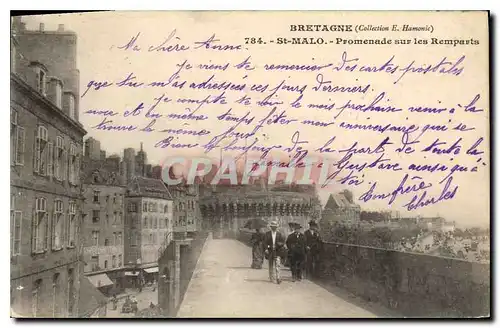 BRETAGNE (Collection E. Hamonic)
784. - St-MALO. - Promenade sur les Remparts
Ma chère Anne
Je viens te remercier des cartes postales
que tu m'as adressées ces jours derniers.
Je compte te voir le mois prochain venir à la
et en même temps fêter mon anniversaire qui se
trouve le même jour.
Bien le bonjour de la part de toute la
famille Gustave ainsi qu'à
toi ton frère
Charles
CPARAMA